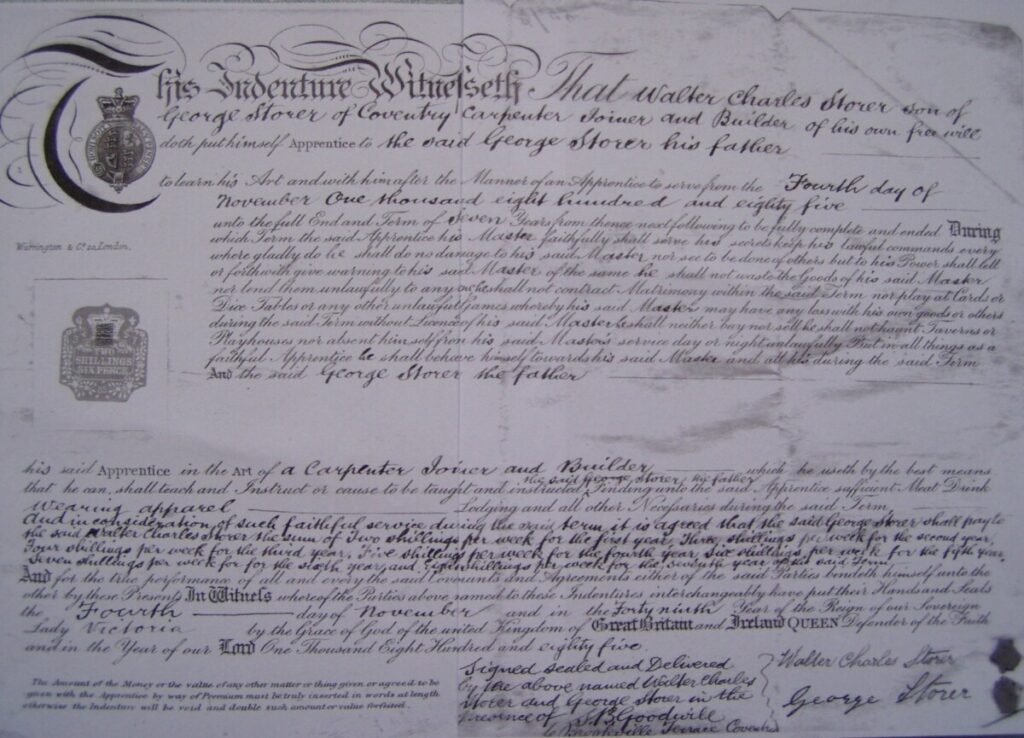 This Indenture Witnesseth That Walter Charles Storer son of
George Storer of Coventry Carpenter Joiner and Builder of his own free will
doth put himself Apprentice to the said George Storer his father
to learn his Art and with him after the Manner of an Apprentice to serve from the Fourth day of
November One thousand eight hundred and eighty five
unto the full End and Term of Seven Years from thence next following to be fully complete and ended During
which Term the said Apprentice his Master faithfully shall serve his secrets keep his lawful commands every
where gladly do he shall do no damage to his said Master nor see to be done of others but to his Power shall tell
or forthwith give warning to his said Master of the same he shall not waste the Goods of his said Master
nor lend them unlawfully to any he shall not contract Matrimony within the said Term nor play at Cards or
Dice Tables or any other unlawful Games whereby his said Master may have any loss with his own goods or others
during the said Term without Licence of his said Master he shall neither buy nor sell he shall not haunt Taverns or
Playhouses nor absent himself from his said Master's service day or night unlawfully But in all things as a
faithful Apprentice he shall behave himself towards his said Master and all his during the said Term
And the said George Storer the father
Waterlow & Co
London.
TWO
SHILLINGS
SIX PENCE
his said Apprentice in the Art of a Carpenter Joiner and Builder which he useth by the best means
that he can, shall teach and Instruct or cause to be taught and instructed the said George Storer the father Finding unto the said Apprentice sufficient Meat Drink
Wearing apparel Lodging and all other Necessaries during the said Term
And in consideration of such faithful service during the said term it is agreed that the said George Storer shall pay to
the said Walter Charles Storer the sum of Two shillings per week for the first year, Three shillings per week for the second year,
Four shillings per week for the third year, Five shillings per week for the fourth year, Six shillings per week for the fifth year,
Seven shillings per week for for the sixth year, and Eight shillings per week for the seventh year of the said Term,
And for the true performance of all and every the said Covenants and Agreements either of the said Parties bindeth himself unto the
other by these Presents In Witness whereof the Parties above named to these Indentures interchangeably have put their Hands and Seals
the Fourth day of November and in the Forty ninth Year of the Reign of our Sovereign
Lady Victoria by the Grace of God of the united Kingdom of Great Britain and Ireland QUEEN Defender of the Faith
and in the Year of our Lord One Thousand Eight Hundred and eighty five.
Signed sealed and Delivered
by the above named Walter Charles
Storer and George Storer in the
presence of S B Goodwill
Terrace Coventry
Walter Charles Storer
George Storer
The Amount of the Money or the value of any other matter or thing given or agreed to be
given with the Apprentice by way of Premium must be truly inserted in words at length
otherwise the Indenture will be void and double such amount or value forfeited.